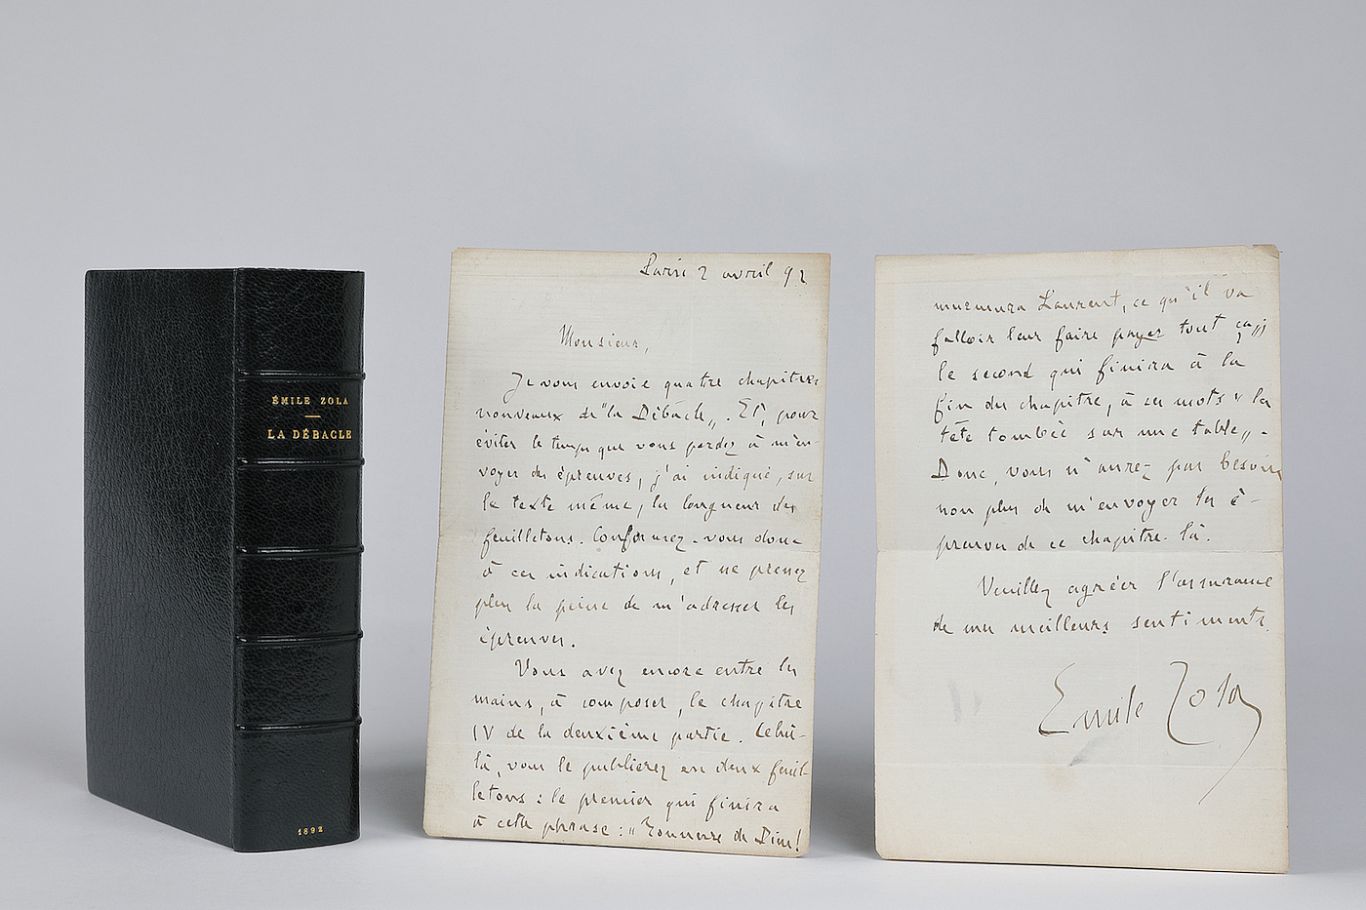 ÉMILE ZOLA
LA DÉBACLE
1892
Paris 2 avril 92
Monsieur,
Je vous envoie quatre chapitres
nouveaux de "la Débâcle„. Et, pour
éviter le temps que vous perdez à m'en-
voyer des épreuves, j'ai indiqué, sur
le texte même, la longueur des
feuilletons. Conformez-vous donc
à ces indications, et ne prenez
plus la peine de m'adresser les
épreuves.
Vous avez encore entre les
mains, à composer, le chapitre
IV de la deuxième partie. Celui-
là, vous le publierez en deux feuil-
letons : le premier qui finira
à cette phrase : "Tonnerre de Dieu!
murmura Laurent, ce qu'il va
falloir leur faire payer tout ça„;
le second qui finira à la
fin du chapitre, à ces mots "la
tête tombée sur une table„.
Donc, vous n'aurez pas besoin
non plus de m'envoyer les é-
preuves de ce chapitre-là.
Veuillez agréer l'assurance
de mes meilleurs sentiments.
Emile Zola